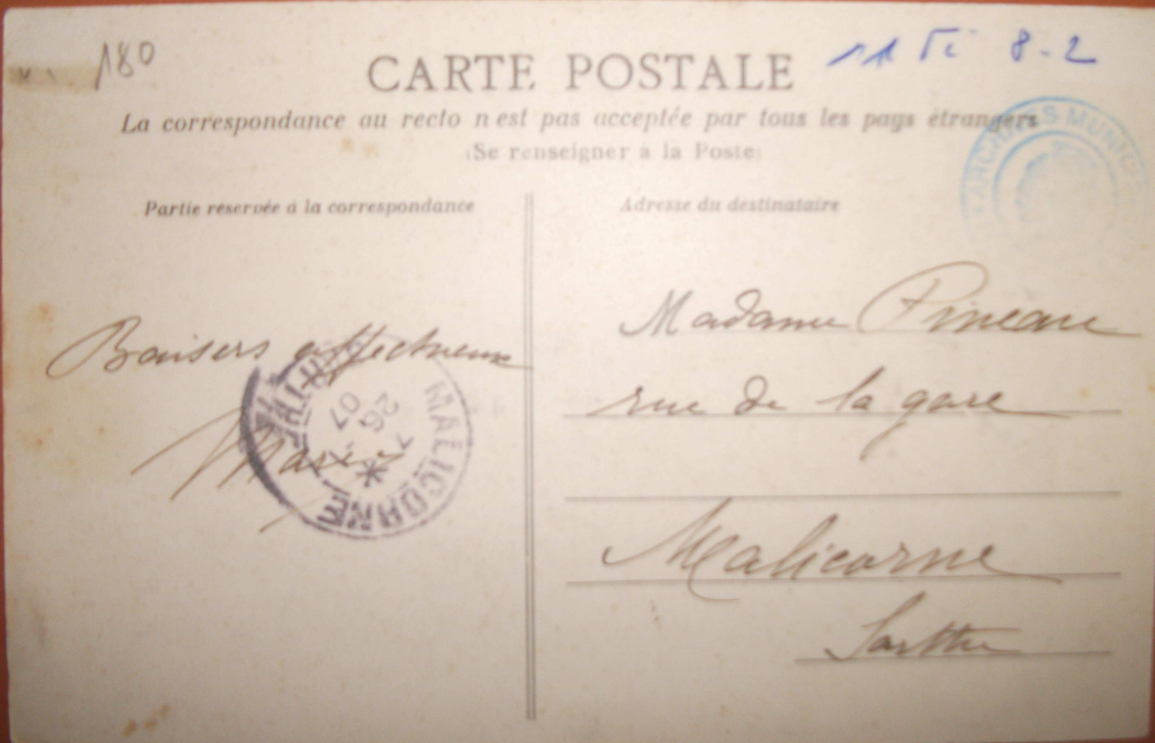 180
11 Fi 8-2
CARTE POSTALE
La correspondance au recto n'est pas acceptée par tous les pays étrangers
(Se renseigner à la Poste)
ARCHIVES MUNICI
Partie réservée à la correspondance
Adresse du destinataire
Baisers affectueux
Marie
MALICORNE
SARTHE
26
07
Madame Pineau
rue de la gare
Malicorne
Sarthe